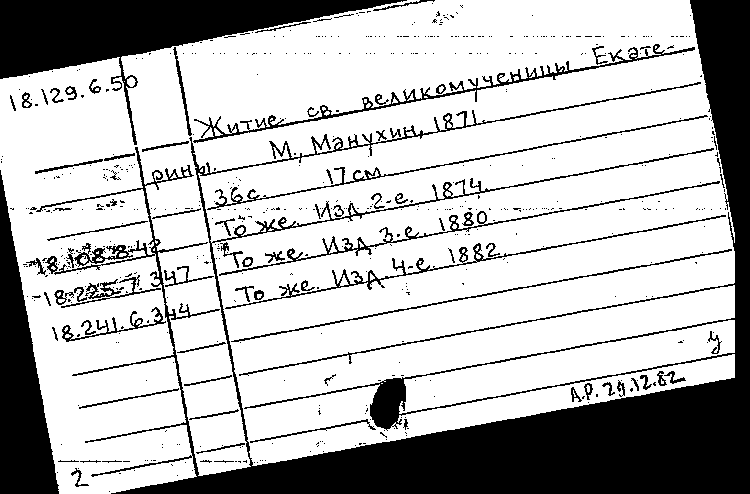 18.129.6.50
Житие св. великомученицы Екате-
рины. М., Манухин, 1871.
36 с. 17 см.
То же. Изд. 2-е. 1874.
18.108.8.42 То же. Изд. 3-е. 1880.
18.225.7.347 То же. Изд. 4-е. 1882.
18.241.6.344
у
А.Р. 29.12.82
2